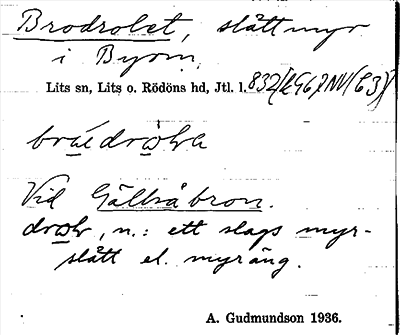 Brodrolet, slåttmyr
i Byom.
Lits sn, Lits o. Rödöns hd, Jtl. l.
Vid Gällsåbron.
n.: ett slags myr-
slått el. myräng.
A. Gudmundson 1936.